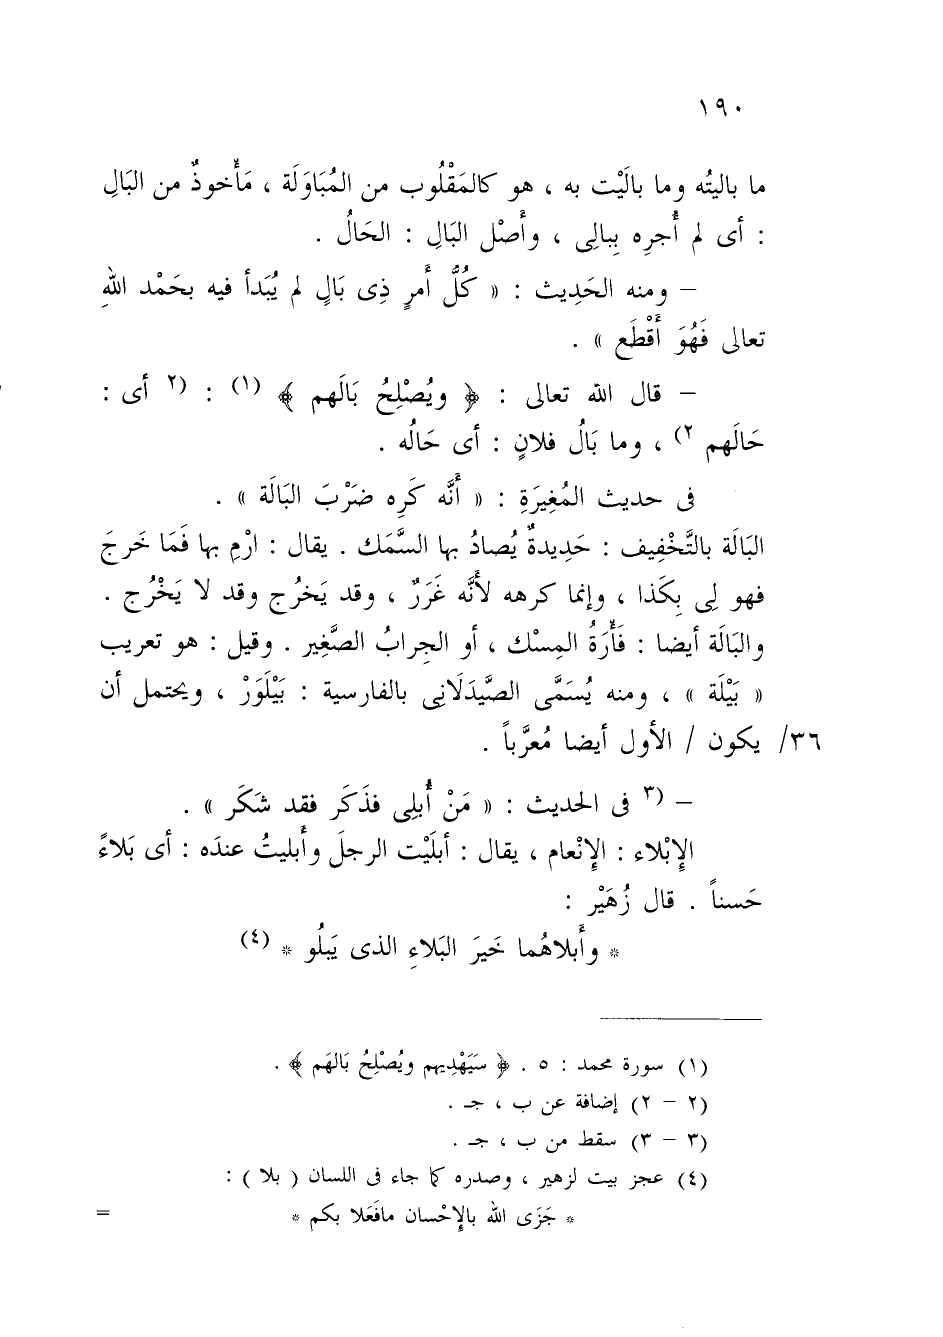 ١٩٠
ما باليتُه وما بالَيْت به ، هو كالمَقْلُوب من المُبَاوَلَة ، مَأْخوذٌ من البَالِ
: أى لم أُجرِه بِبالِى ، وأَصْل البَالِ : الحَالُ .
– ومنه الحَدِيث : « كُلُّ أَمرٍ ذِى بَالٍ لم يُبَدأ فيه بحَمْد اللهِ
تعالى فَهُوَ أَقْطَع » .
– قال الله تعالى : ﴿ ويُصْلِحُ بَالَهم ﴾ (١) : (٢ أى :
حَالَهم ٢) ، وما بَالُ فلانٍ : أى حَالُه .
فى حديث المُغِيرَةِ : « أَنَّه كَرِه ضَرْبَ البَالَة » .
البَالَة بالتَّخْفِيف : حَدِيدةٌ يُصادُ بها السَّمَك . يقال : ارْمِ بها فَمَا خَرجَ
فهو لِى بِكَذا ، وإنما كرهه لأَنَّه غَرَرٌ ، وقد يَخرُج وقد لا يَخْرُج .
والبَالَة أيضا : فَأْرَةُ المِسْك ، أو الجِرابُ الصَّغِير . وقيل : هو تعريب
« بَيْلَة » ، ومنه يُسَمَّى الصَّيدَلَانِى بالفارسية : بَيْلَوَرْ ، ويحتمل أن
٣٦/ يكون / الأول أيضا مُعرَّباً .
– (٣ فى الحديث : « مَنْ أُبلِى فذَكَر فقد شَكَر » .
الإِبْلاء : الإِنْعام ، يقال : أبلَيْت الرجلَ وأَبليتُ عندَه : أى بَلاءً
حَسناً . قال زُهَيْر :
* وأَبلاهُما خَيرَ البَلاءِ الذى يَبلُو * (٤)
(١) سورة محمد : ٥ . ﴿ سَيَهْدِيهم ويُصْلِحُ بَالهَم ﴾ .
(٢ – ٢) إضافة عن ب ، جـ .
(٣ – ٣) سقط من ب ، جـ .
(٤) عجز بيت لزهير ، وصدره كما جاء فى اللسان ( بلا ) :
* جَزَى الله بالإِحْسان مافَعَلا بكم *
=